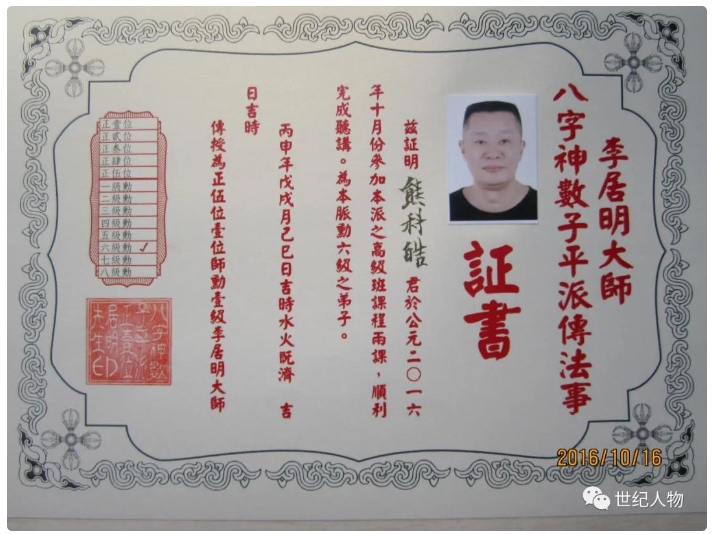 李居明大師
八字神數子平派傳法事
証書
茲証明 熊科皓 君於公元二〇一六
年十月份參加本派之高級班課程兩課，順利
完成聽講。為本脈勳六級之弟子。
丙申年戊戌月己巳日吉時水火既濟 吉
日吉時
傳授為正伍位壹位師勳壹級李居明大師
正壹位
正貳位
正叁位
正肆位
正伍位
一級勳
二級勳
三級勳
四級勳
五級勳
六級勳 ✓
七級勳
八級勳
2016/10/16
世纪人物